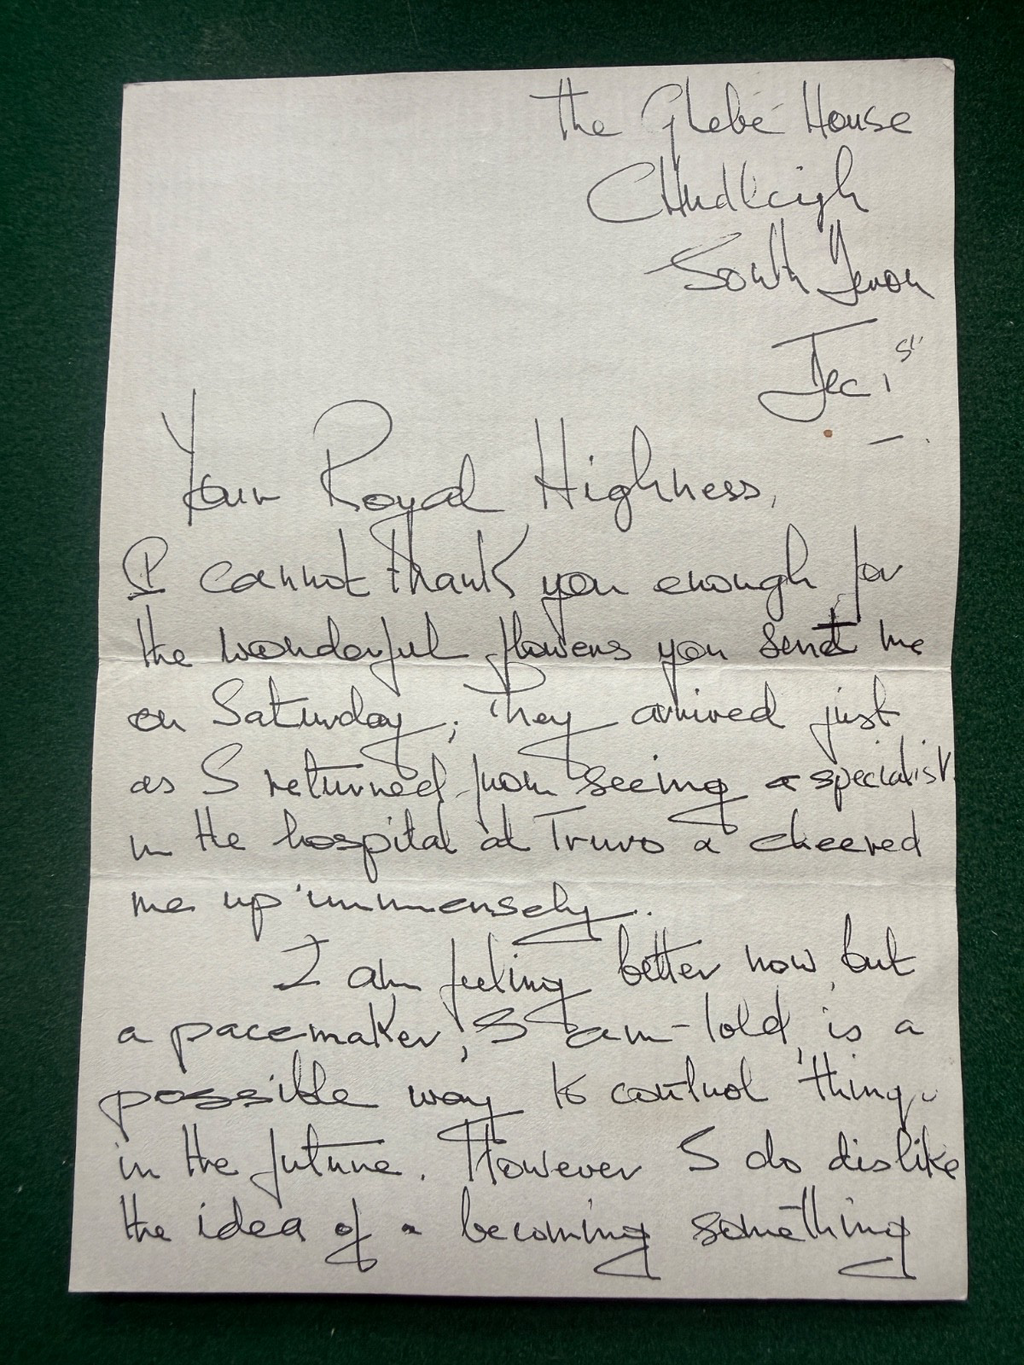 The Glebe House
Chudleigh
South Devon
Dec 1st
Your Royal Highness,
I cannot thank you enough for
the wonderful flowers you sent me
on Saturday; they arrived just
as I returned from seeing a specialist
in the hospital at Truro & cheered
me up immensely.
I am feeling better now, but
a pacemaker, I am told, is a
possible way to control things
in the future. However I do dislike
the idea of becoming something